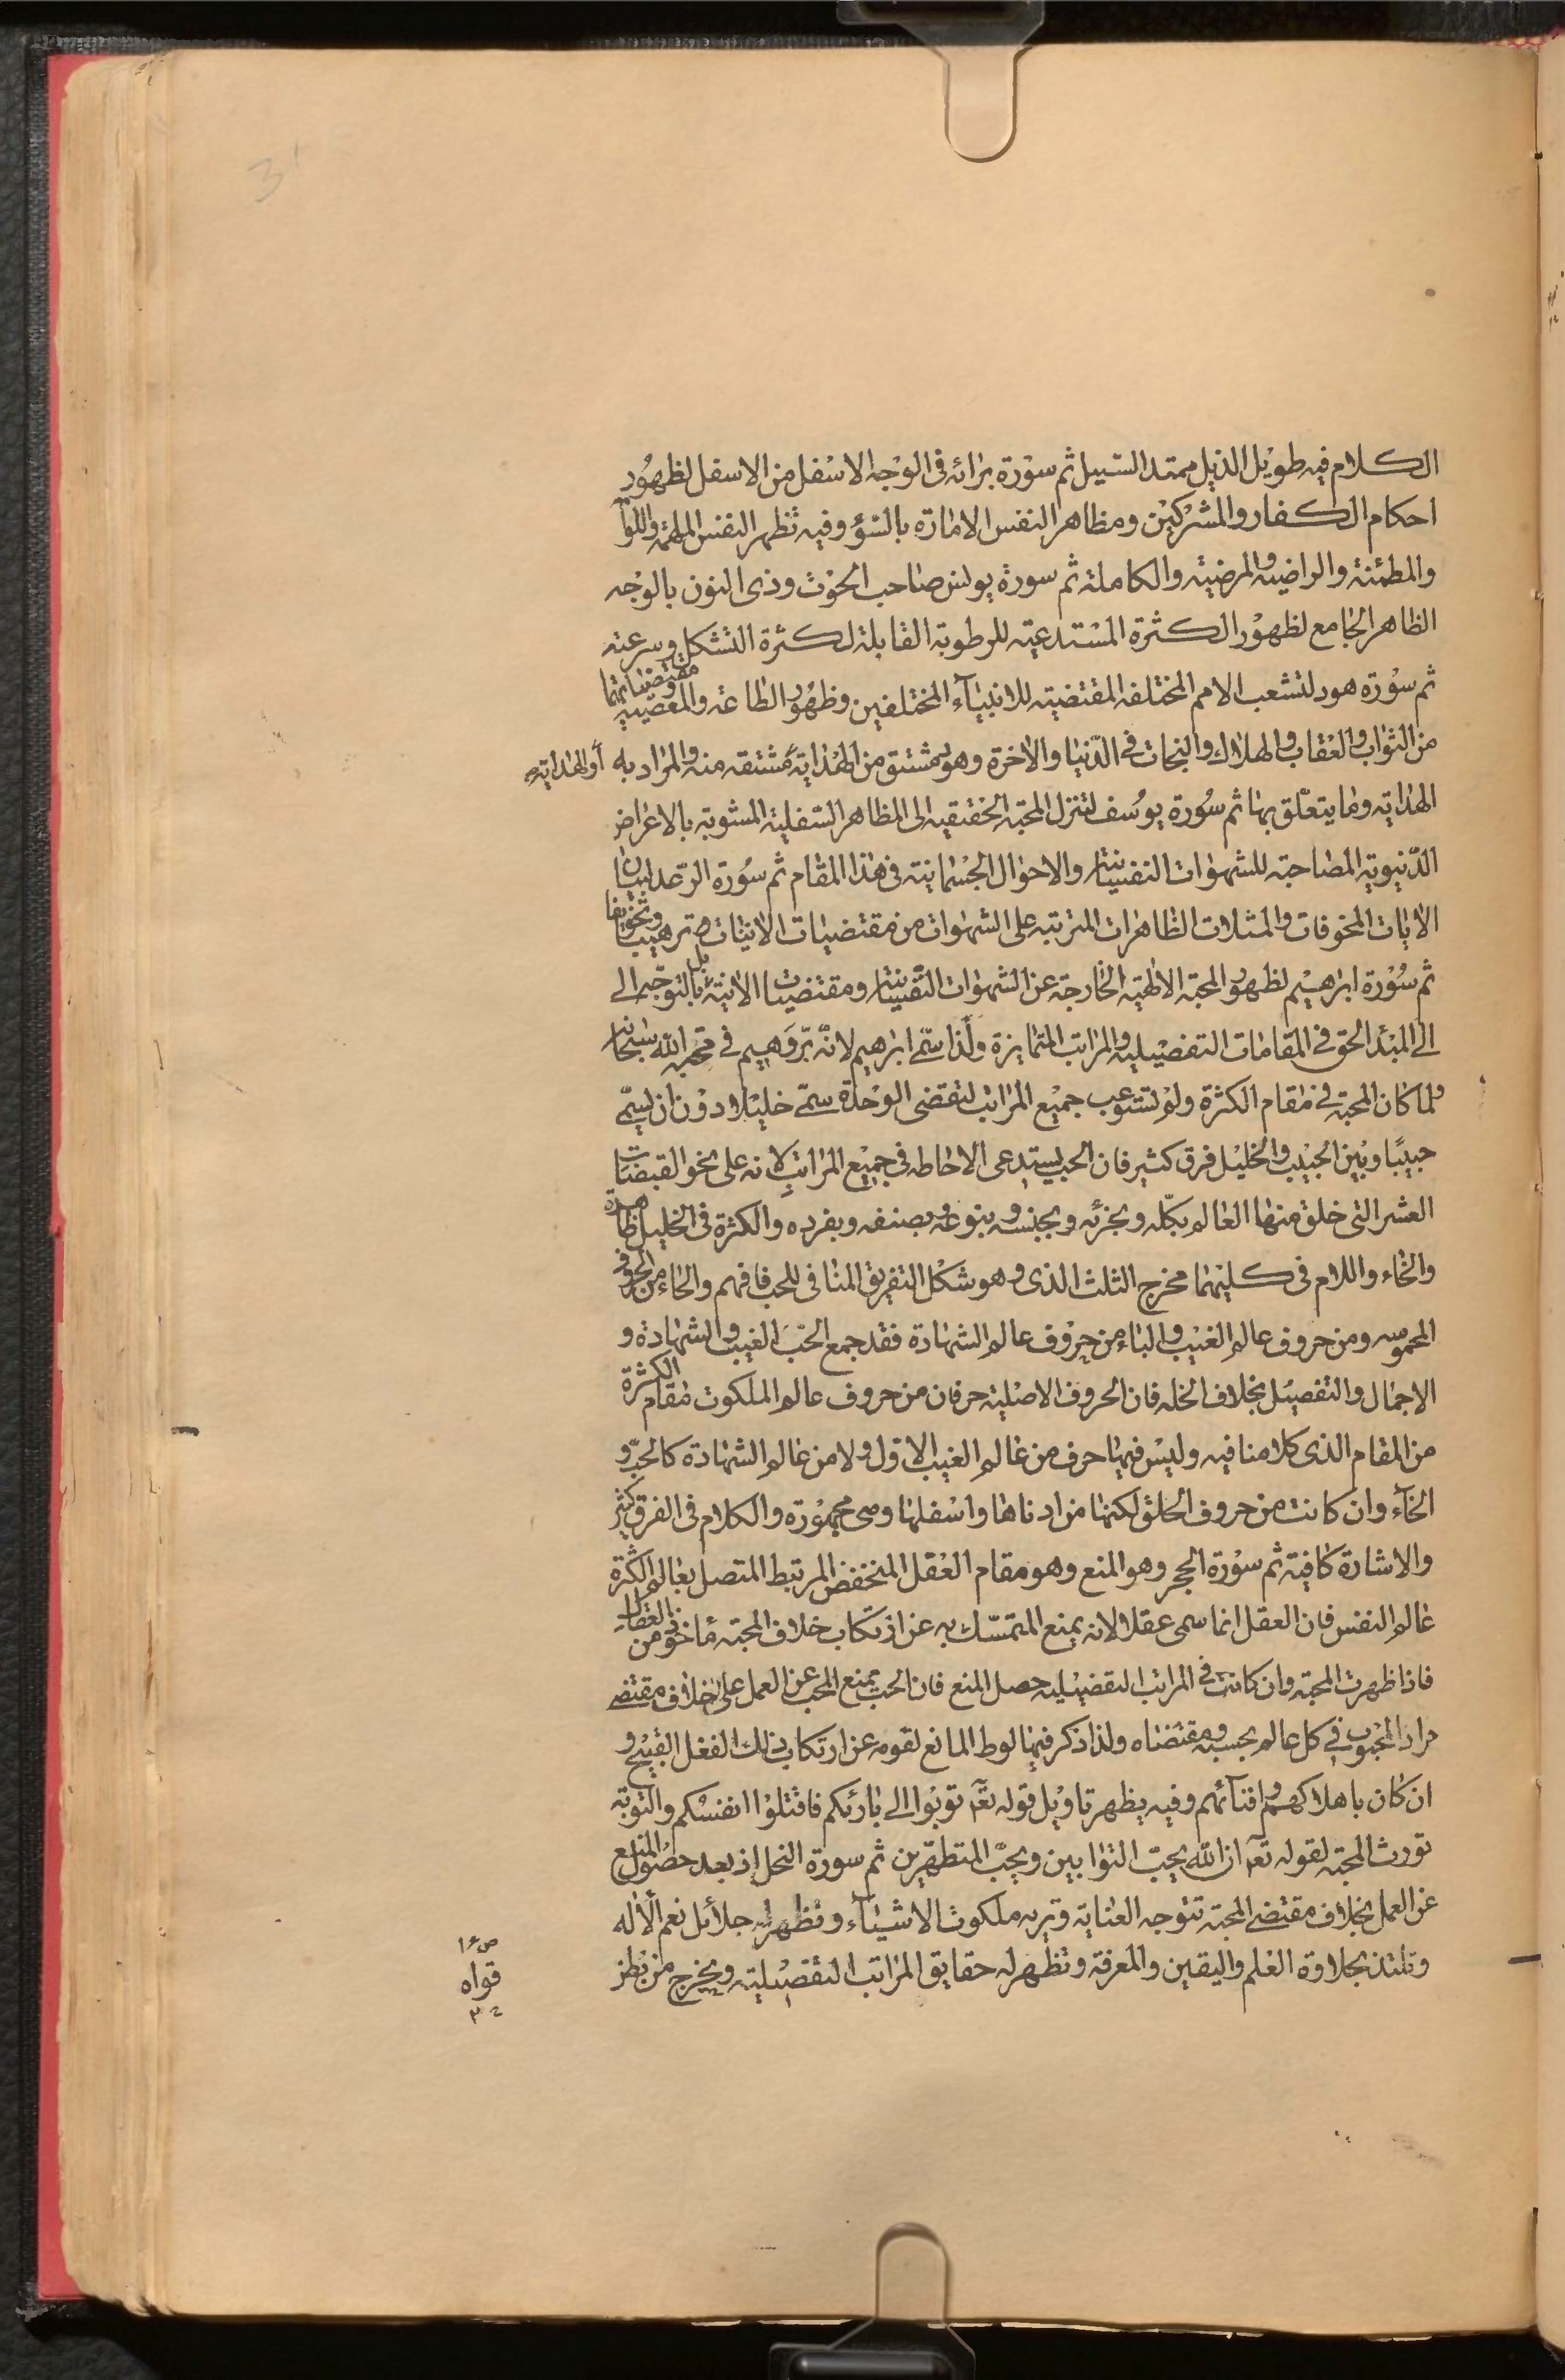 الكلام فيه طويل الذيل ممتد السبيل ثم سورة برائه فى الوجه الاسفل من الاسفل لظهور
احكام الكفار والمشركين ومظاهر النفس الامارة بالسوء وفيه تظهر النفس الملهمة واللوا
والمطمئنة والراضية والمرضية والكاملة ثم سورة يونس صاحب الحوت وذى النون بالوجه
الظاهر الجامع لظهور الكثرة المستدعية للرطوبة القابلة لكثرة التشكل وسرعته
ثم سورة هود لتشعب الامم المختلفه المقتضية للانبياء المختلفين وظهور الطاعة والمعصية ومقتضياتهما
من الثواب والعقاب والهلاك والنجات فى الدنيا والاخرة وهو مشتق من الهداية مشتقه منه والمراد به أو الهداية
الهداية وما يتعلق بها ثم سورة يوسف لتنزل المحبة الحقيقية الى المظاهر السفلية المشوبة بالاغراض
الدنيوية المصاحبة للشهوات النفسانية والاحوال الجسمانية فى هذا المقام ثم سورة الرعد لبيان
الايات المخوفات والمثلات الظاهرات المترتبه على الشهوات من مقتضيات الانيات ترهيبا وتخويفا
ثم سورة ابرهيم لظهور المحبة الالهية الخارجة عن الشهوات النفسانية ومقتضيات الانية بل بالتوجه الى
الى المبدأ الحق فى المقامات التفصيلية والمراتب المتمايزة ولذا سمى ابرهيم لانه بر وهيم فى محبة الله سبحانه
ولما كان المحبة فى مقام الكثرة ولم تستوعب جميع المراتب لتقضى الوحدة سمى خليلا دون ان يسمى
حبيبا وبين الحبيب والخليل فرق كثير فان الحب يستدعى الاحاطه فى جميع المراتب لانه على نحو القبضات
العشر التى خلق منها العالم بكله وبجزئه وبجنسه وبنوعه وبصنفه وبفرده والكثرة فى الخليل ظاهرة
والخاء واللام فى كليهما مخرج الثلث الذى هو شكل التفريق المنافى للحب فافهم والحاء من الحروف
المهموسه ومن حروف عالم الغيب والباء من حروف عالم الشهادة فقد جمع الحب الغيب والشهادة و
الاجمال والتفصيل بخلاف الخله فان الحروف الاصلية حرفان من حروف عالم الملكوت مقام الكثرة
من المقام الذى كلامنا فيه وليس فيها حرف من عالم الغيب الاول ولا من عالم الشهادة كالحب و
الخآء وان كانت من حروف الحلق لكنها من ادناها واسفلها وهى مجهورة والكلام فى الفرق كثير
والاشارة كافية ثم سورة الحجر وهو المنع وهو مقام العقل المنخفض المرتبط المتصل بعالم الكثرة
عالم النفس فان العقل انما سمى عقلا لانه يمنع المتمسك به عن ارتكاب خلاف المحبة مأخوذ من العقال
فاذا ظهرت المحبة وان كانت فى المراتب التفصيلية حصل المنع فان الحب يمنع المحب عن العمل على خلاف مقتضى
مراد المحبوب فى كل عالم بحسبه ومقتضاه ولذا ذكر فيها لوط المانع لقومه عن ارتكاب ذلك الفعل القبيح و
ان كان باهلاكهم وافنآئهم وفيه يظهر تاويل قوله تعه توبوا الى بارئكم فاقتلوا انفسكم والتوبة
تورث المحبة لقوله تعه ان الله يحب التوابين ويحب المتطهرين ثم سورة النحل اذ بعد حصول المنع
عن العمل بخلاف مقتضى المحبة تتوجه العناية وتربه ملكوت الاشيآء وتظهر له جلائل نعم الاله
وتلتذ بحلاوة العلم واليقين والمعرفة وتظهر له حقايق المراتب التفصيلية ويخرج من بطن
قواه